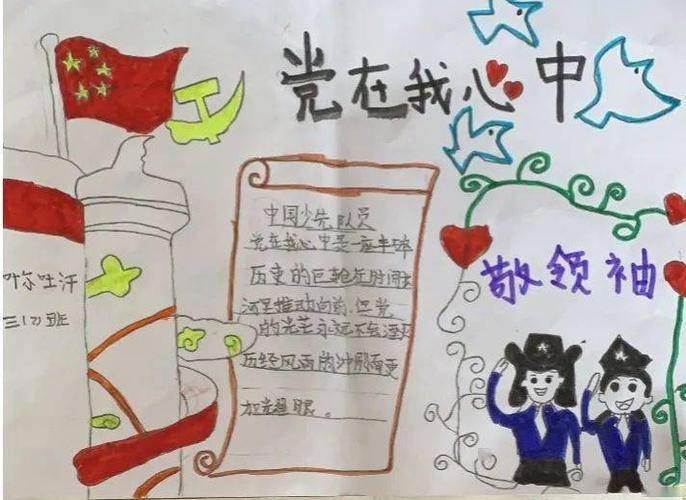 党在我心中
中国少先队员
党在我心中是一座丰碑
历史的巨轮在时间长
河里推动向前.但党
的光芒永远不会
历经风雨的冲刷而更
加光 眼。
敬领袖
叶尔吐汗
三(2)班